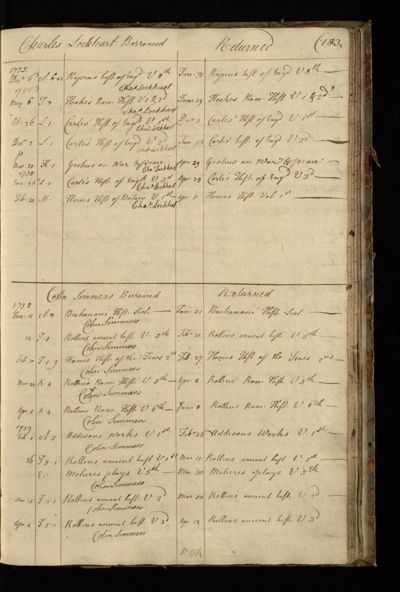 Charles Lockhart Borrowed Returned (183
1755
Decr 6 A.6 Rapins hist of Engd V 9th Jan. 31 Rapins hist of Engd V 9th
Chas Lockhart
1756
May 6 F.2 Hookes Rom: Hist. V 1 & 2d June 19 Hookes Rom: Hist. V 1 & 2d
Chas Lockhart
Oct 26 L.1 Cartes Hist of Engd V 1st Dec 2 Cartes Hist of Engd V 1st
Chas Lockhart
Dec 2 L.1 Cartes Hist of Engd V 2d Jan Cartes hist of Engd V 2d
Chas Lockhart
Mar. 21 K.1 Grotius on War & Peace Apr 29 Grotius on War & Peace
Chas Lockhart
1758
L.1 Cartes Hist. of Engd V 3d Apr 29 Cartes Hist. of Engd V 3d
Chas Lockhart
Feb 20 M. Humes Hist. of Britain V 1st Apr 5 Humes Hist. Vol. 1st
Chas Lockhart
Colin Simmers Borrowed Returned
1758
Jan. 11 A.2 Buchanani Hist. Scot. Jan. 21 Buchanani Hist. Scot
Colin Simmers
14 F.5 Rollins ancient hist. V. 5th Feb 10 Rollins ancient hist. V 5th
Colin Simmers
Feb 10 F.5.9 History of the Jews 2d Feb 27 History of the Jews 2nd
Colin Simmers
Mar 22 K.4 Rollins Rom: Hist. V 5th Apr 8 Rollins Rom: Hist. V 5th
Colin Simmers
Apr 8 K.4 Rollins Rom. Hist. V 6th June 8 Rollins Rom. Hist. V 6th
Colin Simmers
1759
Feb 1 A.5 Addisons Works V 1st Feb 26 Addisons Works V 1st
Colin Simmers
26 F.5.1 Rollins ancient hist. V 1st Mar 15 Rollins ancient hist. V 1st
E. Molieres plays V 5th Mar. 30 Molieres plays V 5th
Colin Simmers
F.5.1 Rollins ancient hist. V 2d Mar 30 Rollins ancient hist. V 2d
Colin Simmers
Apr 4 F.5.1 Rollins ancient hist. V 3d Apr. 12 Rollins ancient hist. V 3d
Colin Simmers